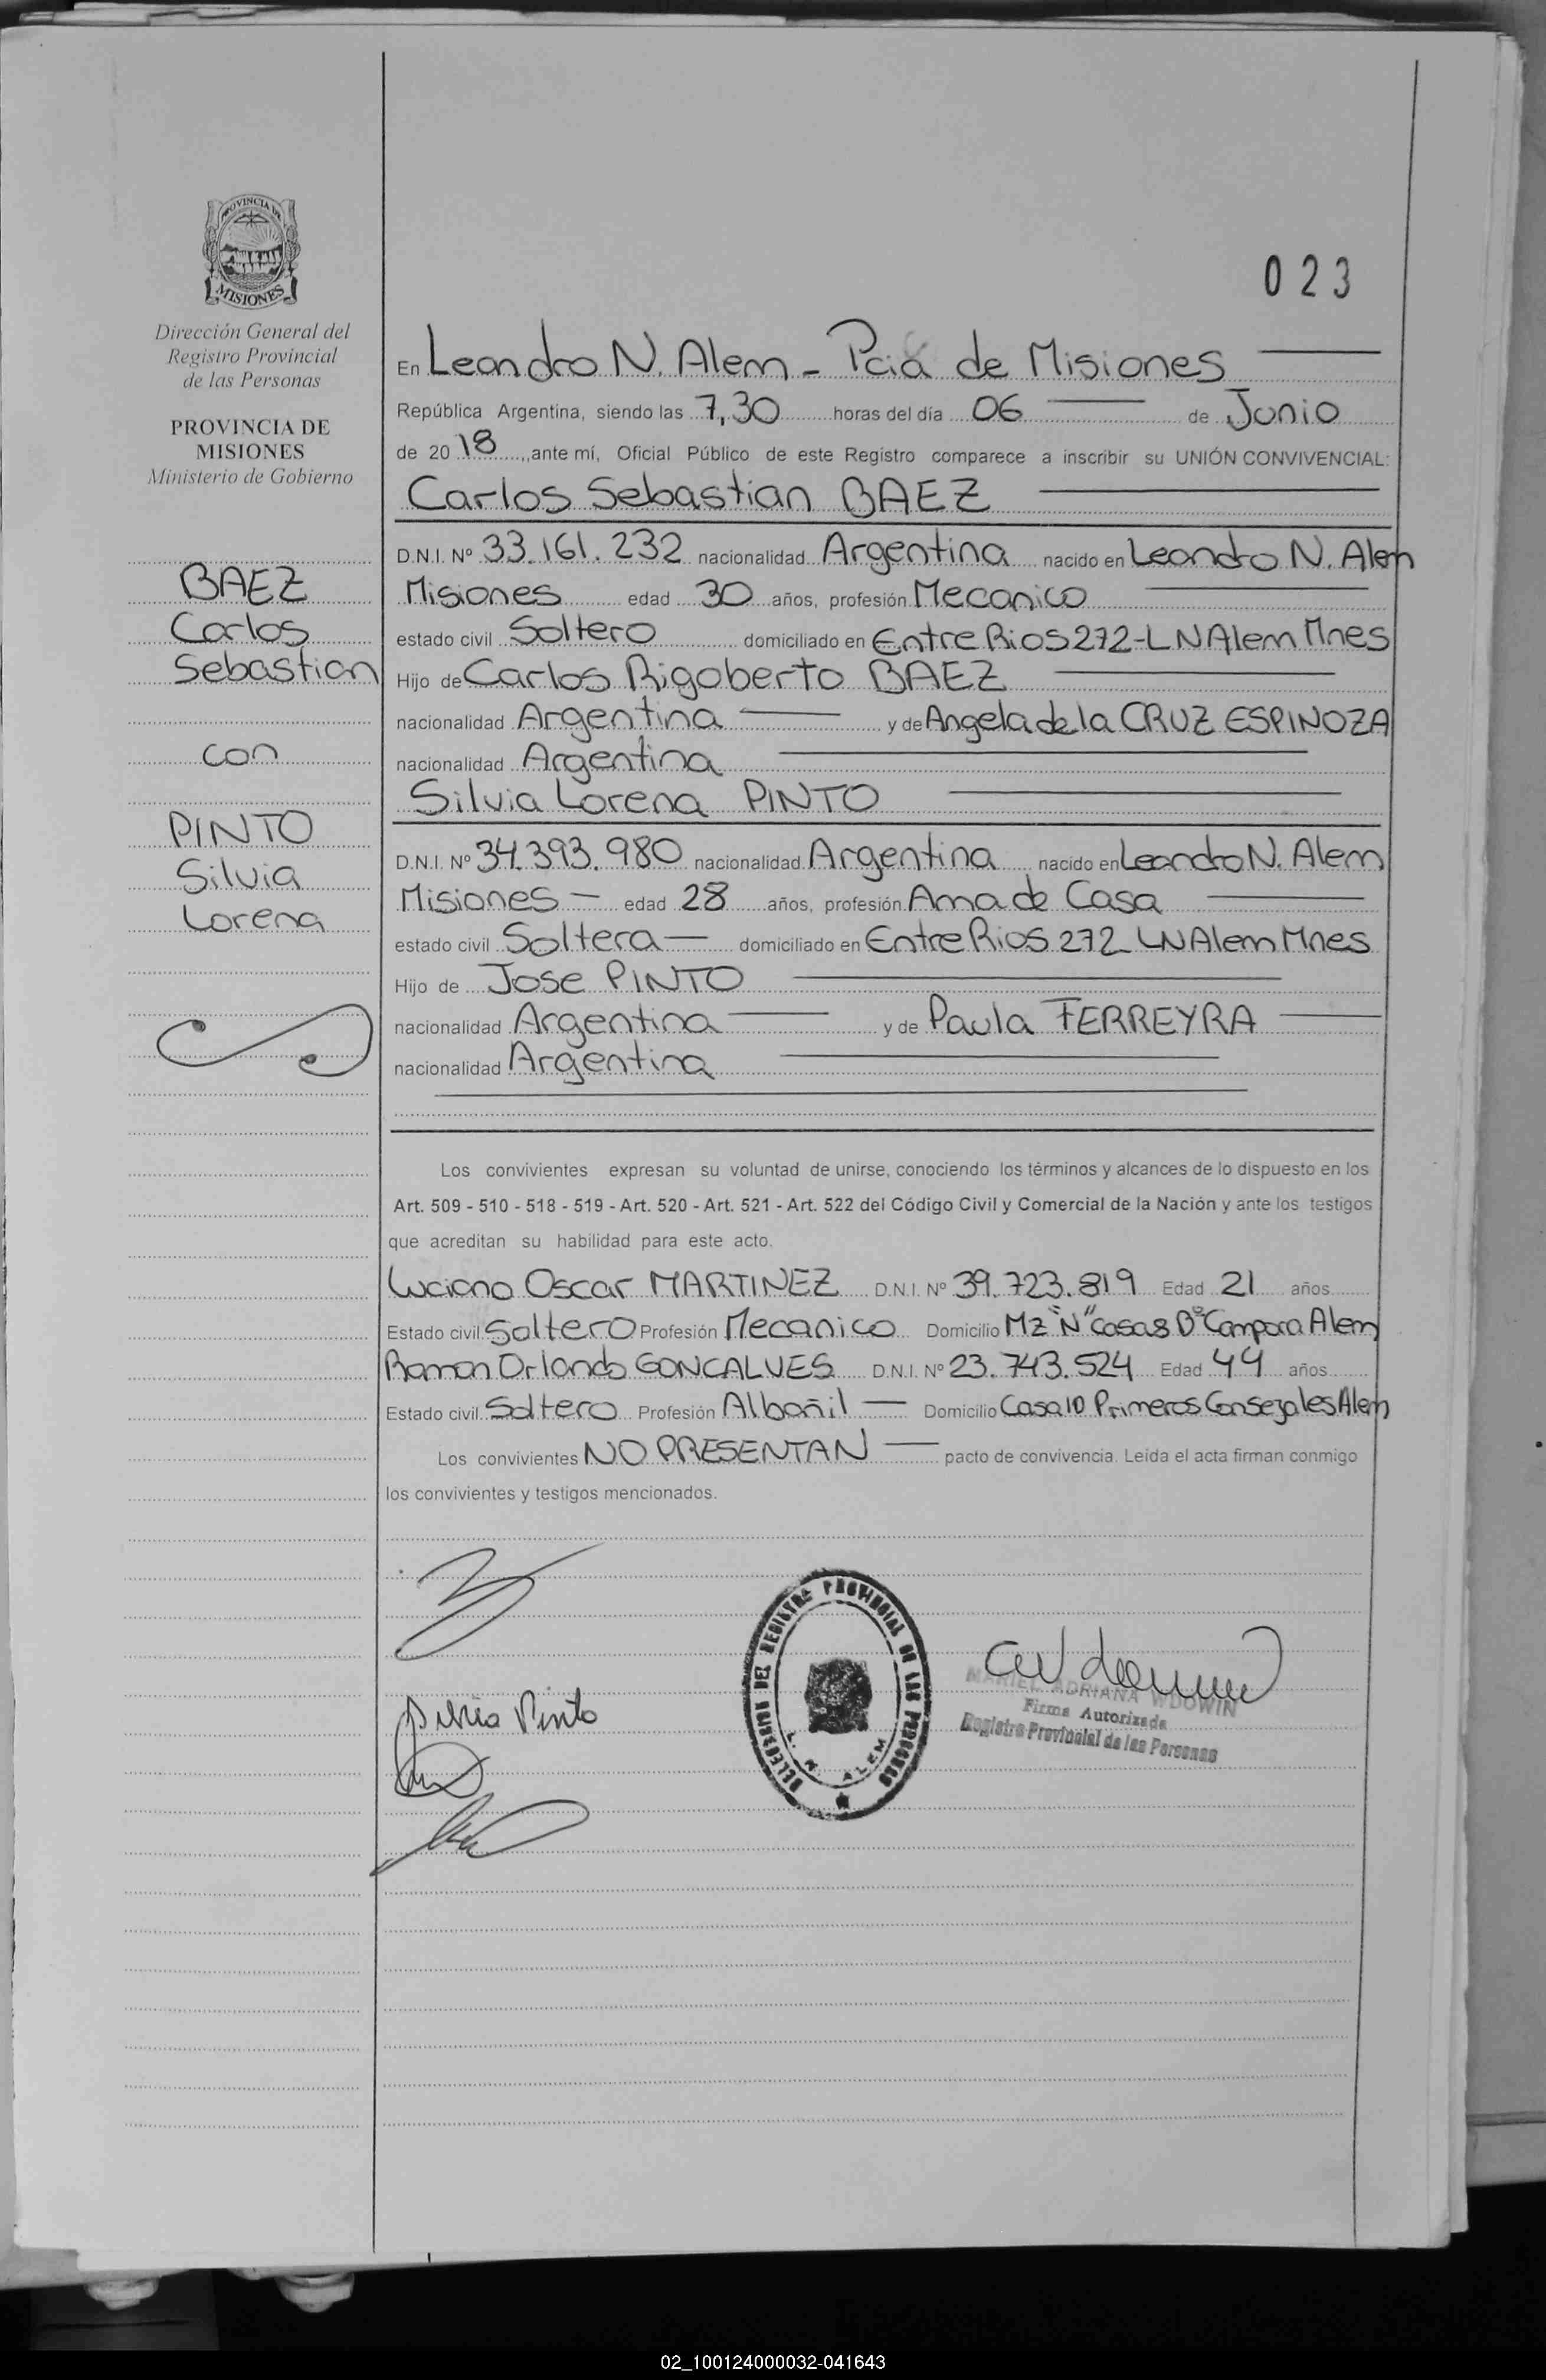 PROVINCIA DE
MISIONES
Dirección General del
Registro Provincial
de las Personas
PROVINCIA DE
MISIONES
Ministerio de Gobierno
BAEZ
Carlos
Sebastian
con
PINTO
Silvia
Lorena
023
En Leandro N. Alem - Pcia de Misiones
República Argentina, siendo las 7,30 horas del día 06 de Junio
de 2018, ante mí, Oficial Público de este Registro comparece a inscribir su UNIÓN CONVIVENCIAL:
Carlos Sebastian BAEZ
D.N.I. Nº 33.161.232 nacionalidad Argentina nacido en Leandro N. Alem
Misiones edad 30 años, profesión Mecanico
estado civil Soltero domiciliado en Entre Rios 272-LNAlem Mnes
Hijo de Carlos Rigoberto BAEZ
nacionalidad Argentina y de Angela de la CRUZ ESPINOZA
nacionalidad Argentina
Silvia Lorena PINTO
D.N.I. Nº 34.393.980 nacionalidad Argentina nacido en Leandro N. Alem
Misiones - edad 28 años, profesión Ama de Casa
estado civil Soltera - domiciliado en Entre Rios 272 LNAlem Mnes
Hijo de Jose PINTO
nacionalidad Argentina y de Paula FERREYRA
nacionalidad Argentina
Los convivientes expresan su voluntad de unirse, conociendo los términos y alcances de lo dispuesto en los
Art. 509 - 510 - 518 - 519 - Art. 520 - Art. 521 - Art. 522 del Código Civil y Comercial de la Nación y ante los testigos
que acreditan su habilidad para este acto.
Luciano Oscar MARTINEZ D.N.I. Nº 39.723.819 Edad 21 años
Estado civil Soltero Profesión Mecanico Domicilio Mz "N" Casa 8 Bº Campora Alem
Ramon Orlando GONCALVES D.N.I. Nº 23.743.524 Edad 44 años
Estado civil Soltero Profesión Albañil - Domicilio Casa 10 Primeros Consejales Alem
Los convivientes NO PRESENTAN - pacto de convivencia. Leída el acta firman conmigo
los convivientes y testigos mencionados.
Silvia Pinto
DELEGACION DEL REGISTRO PROVINCIAL DE LAS PERSONAS
L. N. ALEM
MARIEL ADRIANA WDOWIN
Firma Autorizada
Registro Provincial de las Personas
02_100124000032-041643